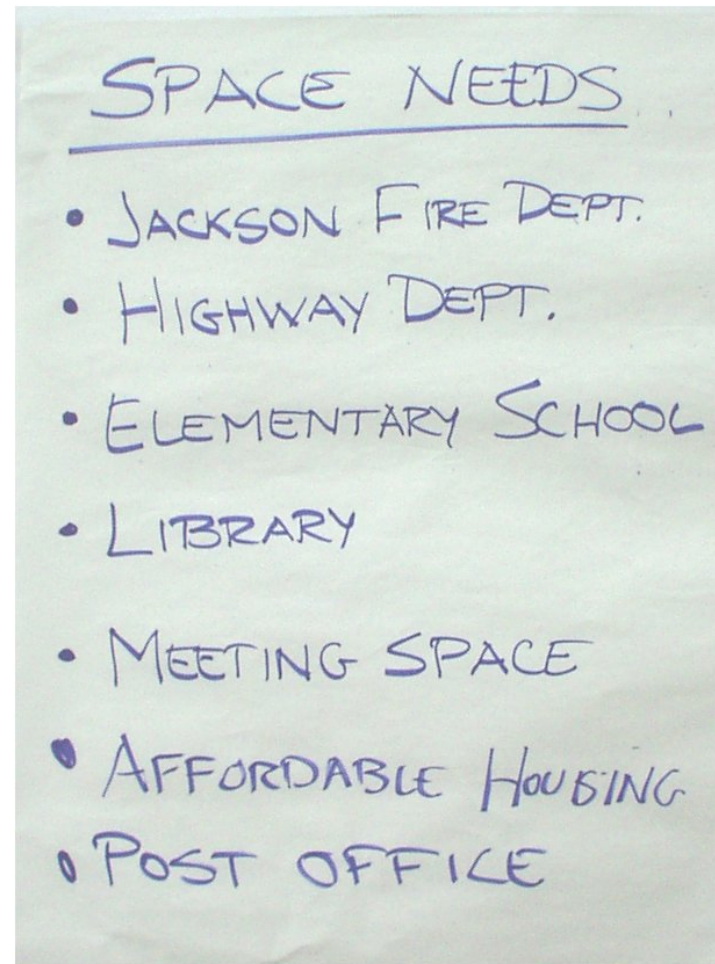 SPACE NEEDS
• JACKSON FIRE DEPT.
• HIGHWAY DEPT.
• ELEMENTARY SCHOOL
• LIBRARY
• MEETING SPACE
• AFFORDABLE HOUSING
• POST OFFICE